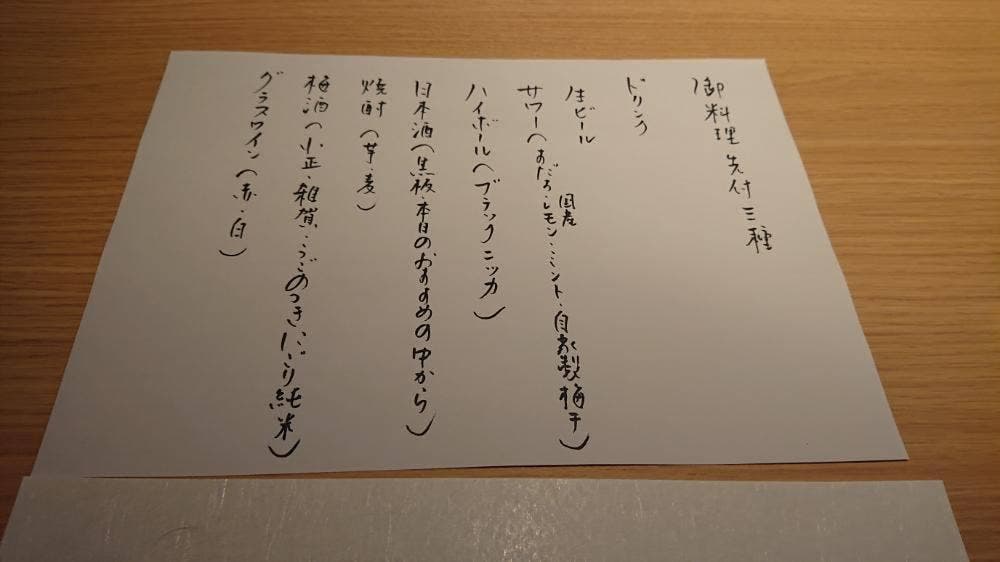 御料理 先付 三種
ドリンク
生ビール
サワー(すだち・国産レモン・ミント・自家製梅干)
ハイボール(ブラックニッカ)
日本酒(黒板・本日のおすすめの中から)
焼酎(芋・麦)
梅酒(小正・雑賀・うごのつき・にごり純米)
グラスワイン(赤・白)